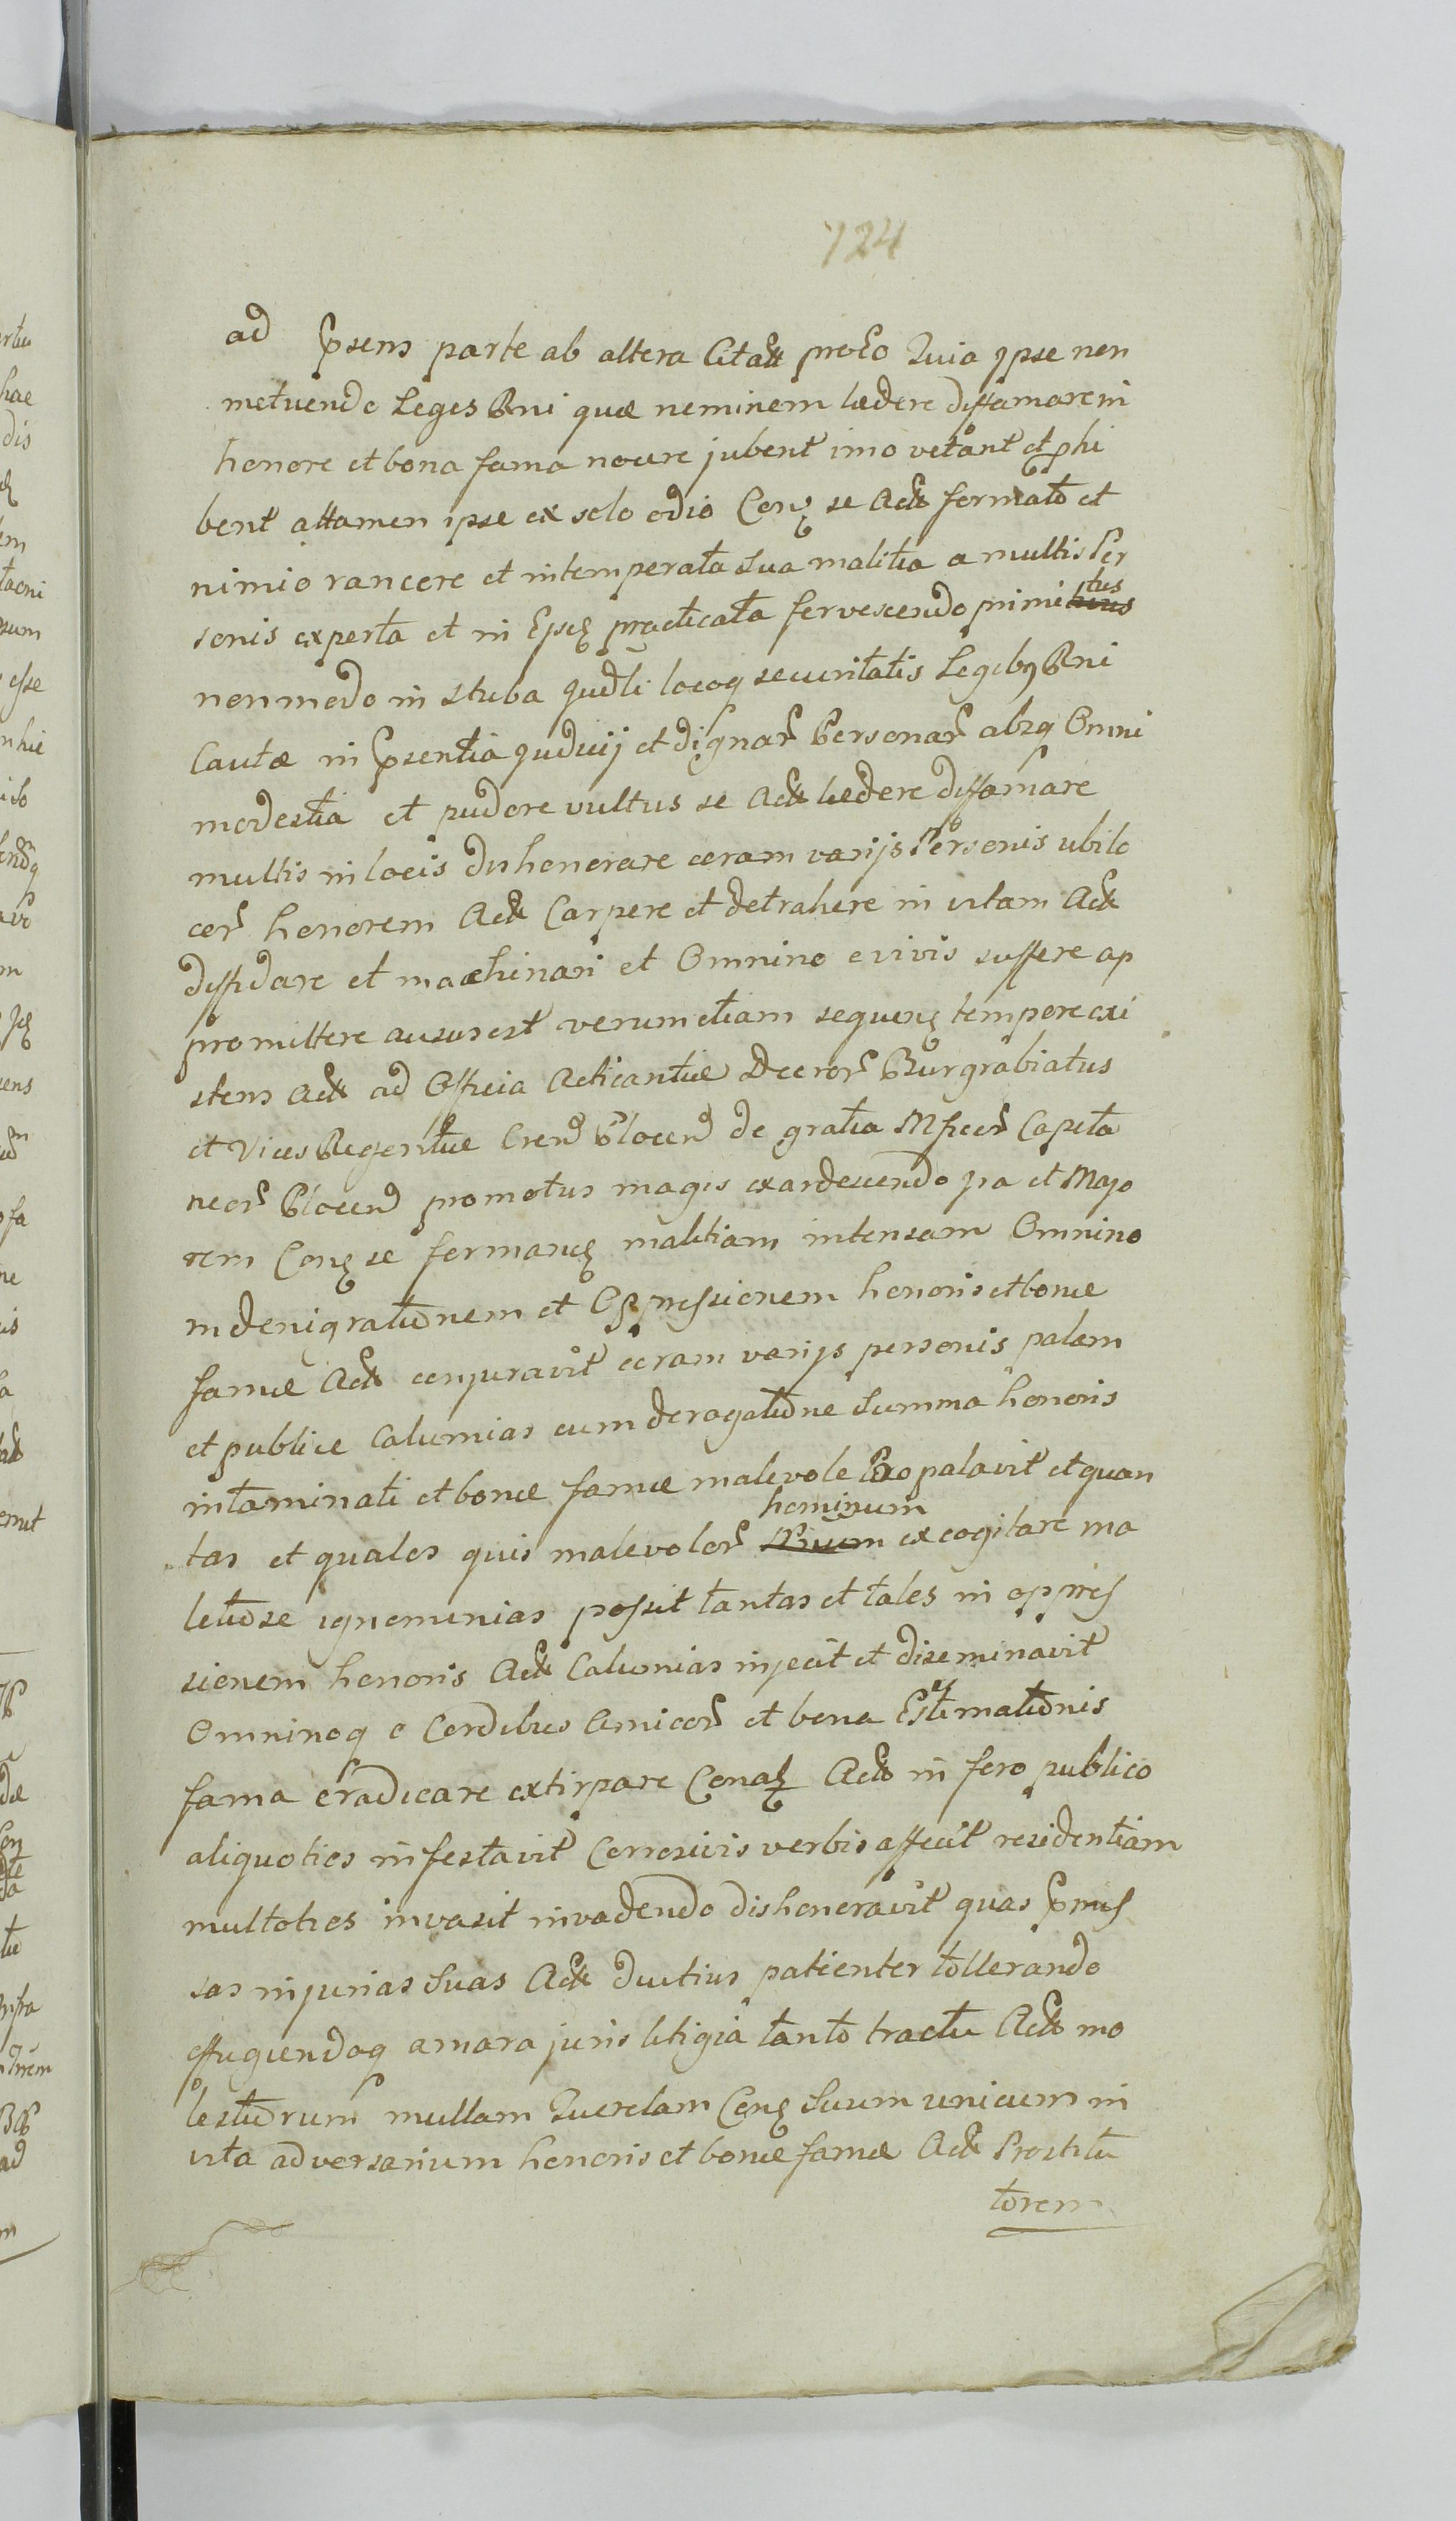 724
ad Psens parte ab altera Citatt proło Quia ipse non
metuendo Leges Rni quæ neminem lædere diffamare in
honore et bona fama nocere jubent imo vetant et phi
bent attamen ipse ex solo odio Con se Act formato et
nimio rancore et intemperata sua malitia a multis Per
sonis experta et in practicata fervescendo primi tus
non modo in stuba Judli locoq securitatis Legibq Rni
Cautæ in Psentia Judicij et dignar Personar absq Omni
modestia et pudore vultus se Act lædere diffamare
multis in locis dishonorare coram varijs Personis ubi lo
cor honorem Act Carpere et detrahere in vitam Act
diffidare et machinari et Omnino e vivis suffere ap
promittere ausus est verum etiam sequen tempore exi
stens Act ad Officia Acticantiæ Decror Burgrabiatus
et Vices Regentiæ Cren Plocen de gratia Mficor Capita
neor Plocen promotus magis exardescendo ira et Majo
rem Con se forman malitiam intensam Omnino
in denigrationem et Oppressionem honoris et bonæ
famæ Act conjuravit coram varijs personis palam
et publice Calumias cum derogatione Summa honoris
intaminati et bonæ famæ malevole Propalavit et quan
tas et quales quis malevolor hominum excogitare ma
litiose ignominias possit tantas et tales in oppres
sionem honoris Act Calumnias injecit et diseminavit
Omninoq e Cordibus Amicor et bona Estimationis
fama eradicare extirpare Conat Act in foro publico
aliquoties infestavit Corrosivis verbis affecit residentiam
multoties invasit invadendo dishonoravit quas Pmis
sas injurias Suas Act diutius patienter tollerando
effugiendoq amara juris litigia tanto tractu Act mo
lestiorum nullam Querelam Con Suum unicum in
vita adversarium honoris et bonæ famæ Act Prostitu
torem